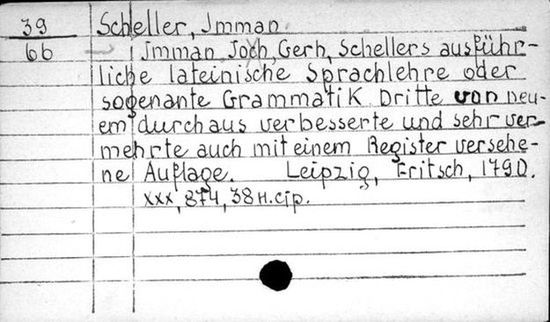 39 Scheller, Jmman.
66 Jmman Joch, Gerh, Schellers ausführ-
liche lateinische Sprachlehre oder
sogenante Grammatik Dritte von neu-
em durchaus verbesserte und sehr ver-
mehrte auch mit einem Register versehe-
ne Auflage. Leipzig, Fritsch, 1790.
XXX, 874, 38